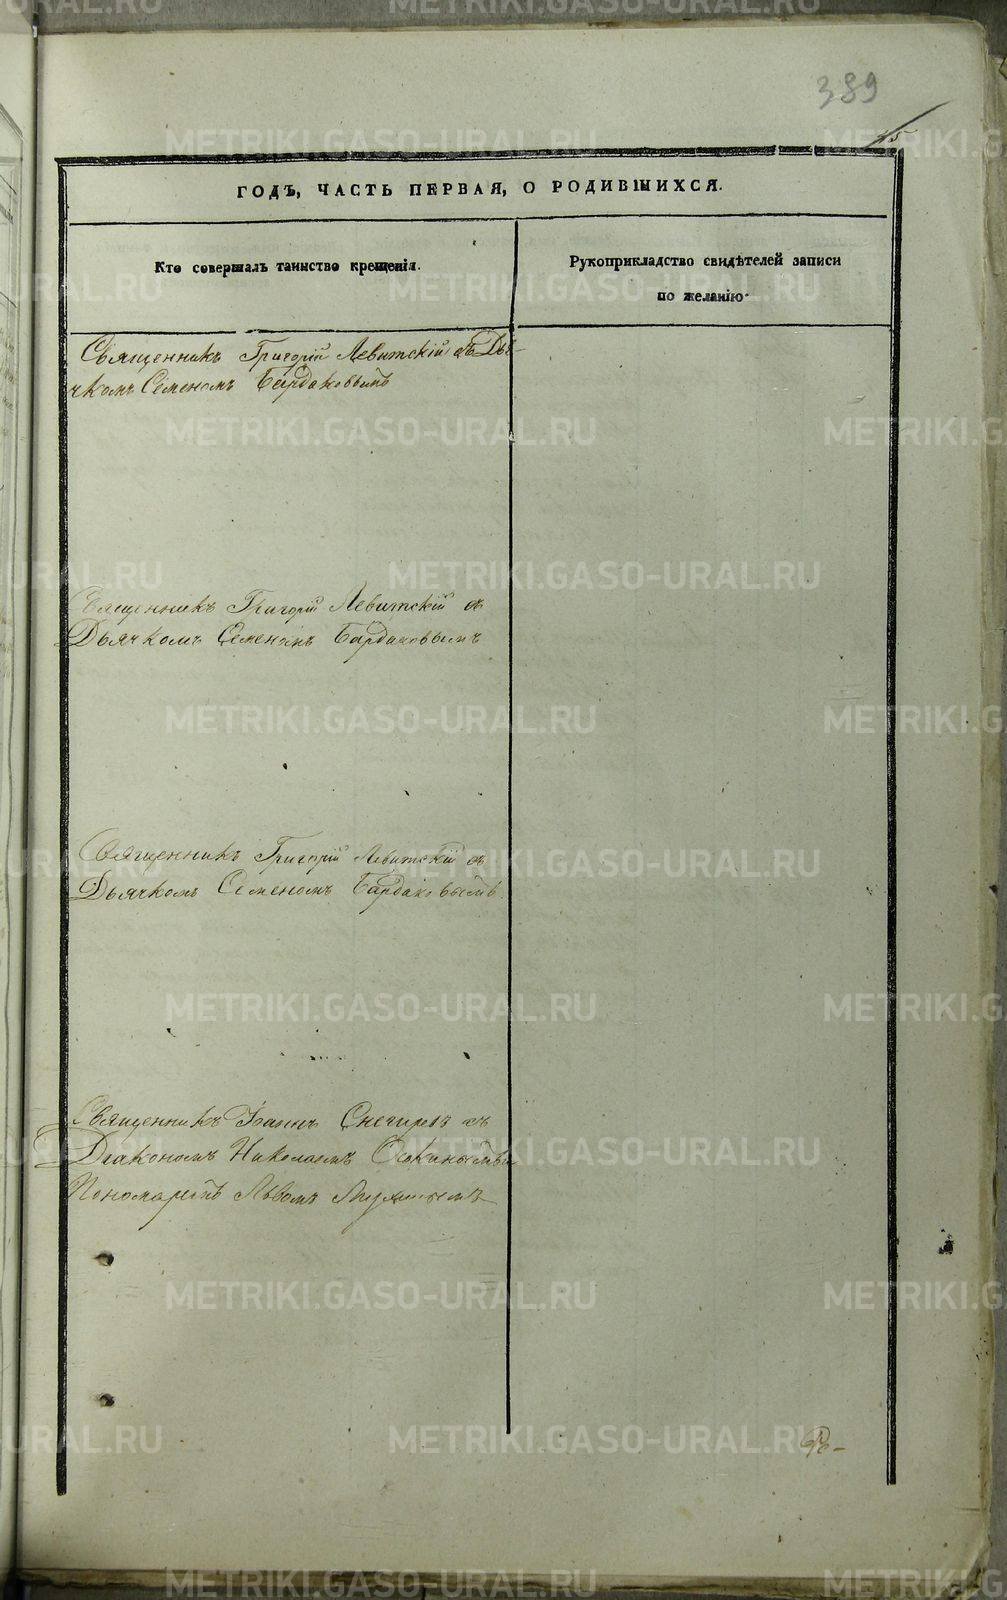 389
15
ГОДЪ, ЧАСТЬ ПЕРВАЯ, О РОДИВШИХСЯ.
Кто совершалъ таинство крещенія.
Рукоприкладство свидѣтелей записи
по желанію.
Священникъ Григорій Левитскій съ Дья-
чкомъ Семеномъ Бардаковымъ
Священникъ Григорій Левитскій съ
Дьячкомъ Семеномъ Бардаковымъ
Священникъ Григорій Левитскій съ
Дьячкомъ Семеномъ Бардаковымъ
Священникъ Іоаннъ Снегиревъ съ
Діакономъ Николаемъ и
Пономаремъ Львомъ
METRIKI.GASO-URAL.RU